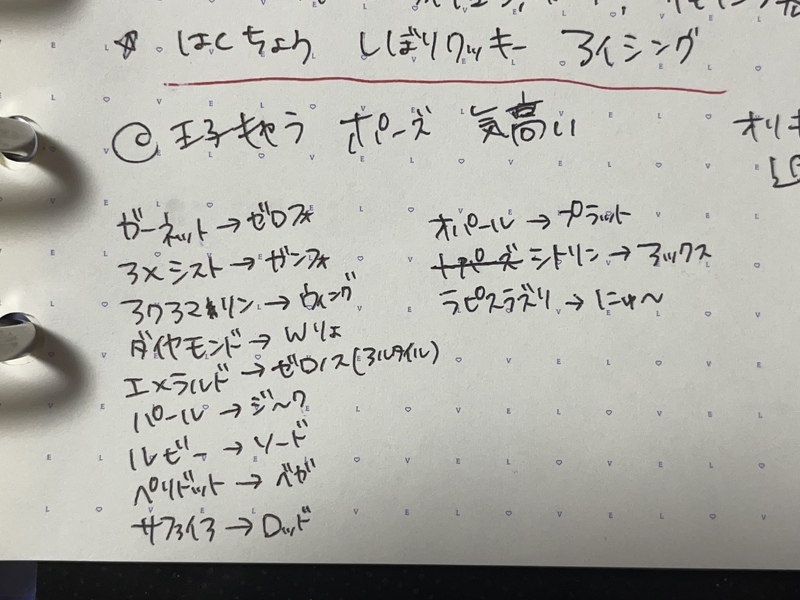 ☆ はくちょう しぼりクッキー アイシング
王子キャラ ポーズ 気高い
オリキ
ガーネット→ゼロフォ
アメシスト→ガンフォ
アクアマリン→ウィング
ダイヤモンド→Wリょ
エメラルド→ゼロノス(アルタイル)
パール→ジーク
ルビー→ソード
ペリドット→ベガ
サファイア→ロッド
オパール→プラット
トパーズ シトリン→アックス
ラピスラズリ→にゅ〜